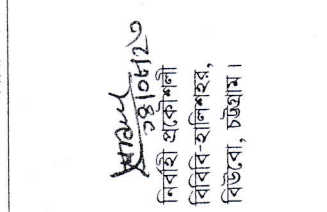 ১৪/০৮/২৩
নির্বাহী প্রকৌশলী
বিবিবি-হালিশহর,
বিউবো, চট্টগ্রাম।